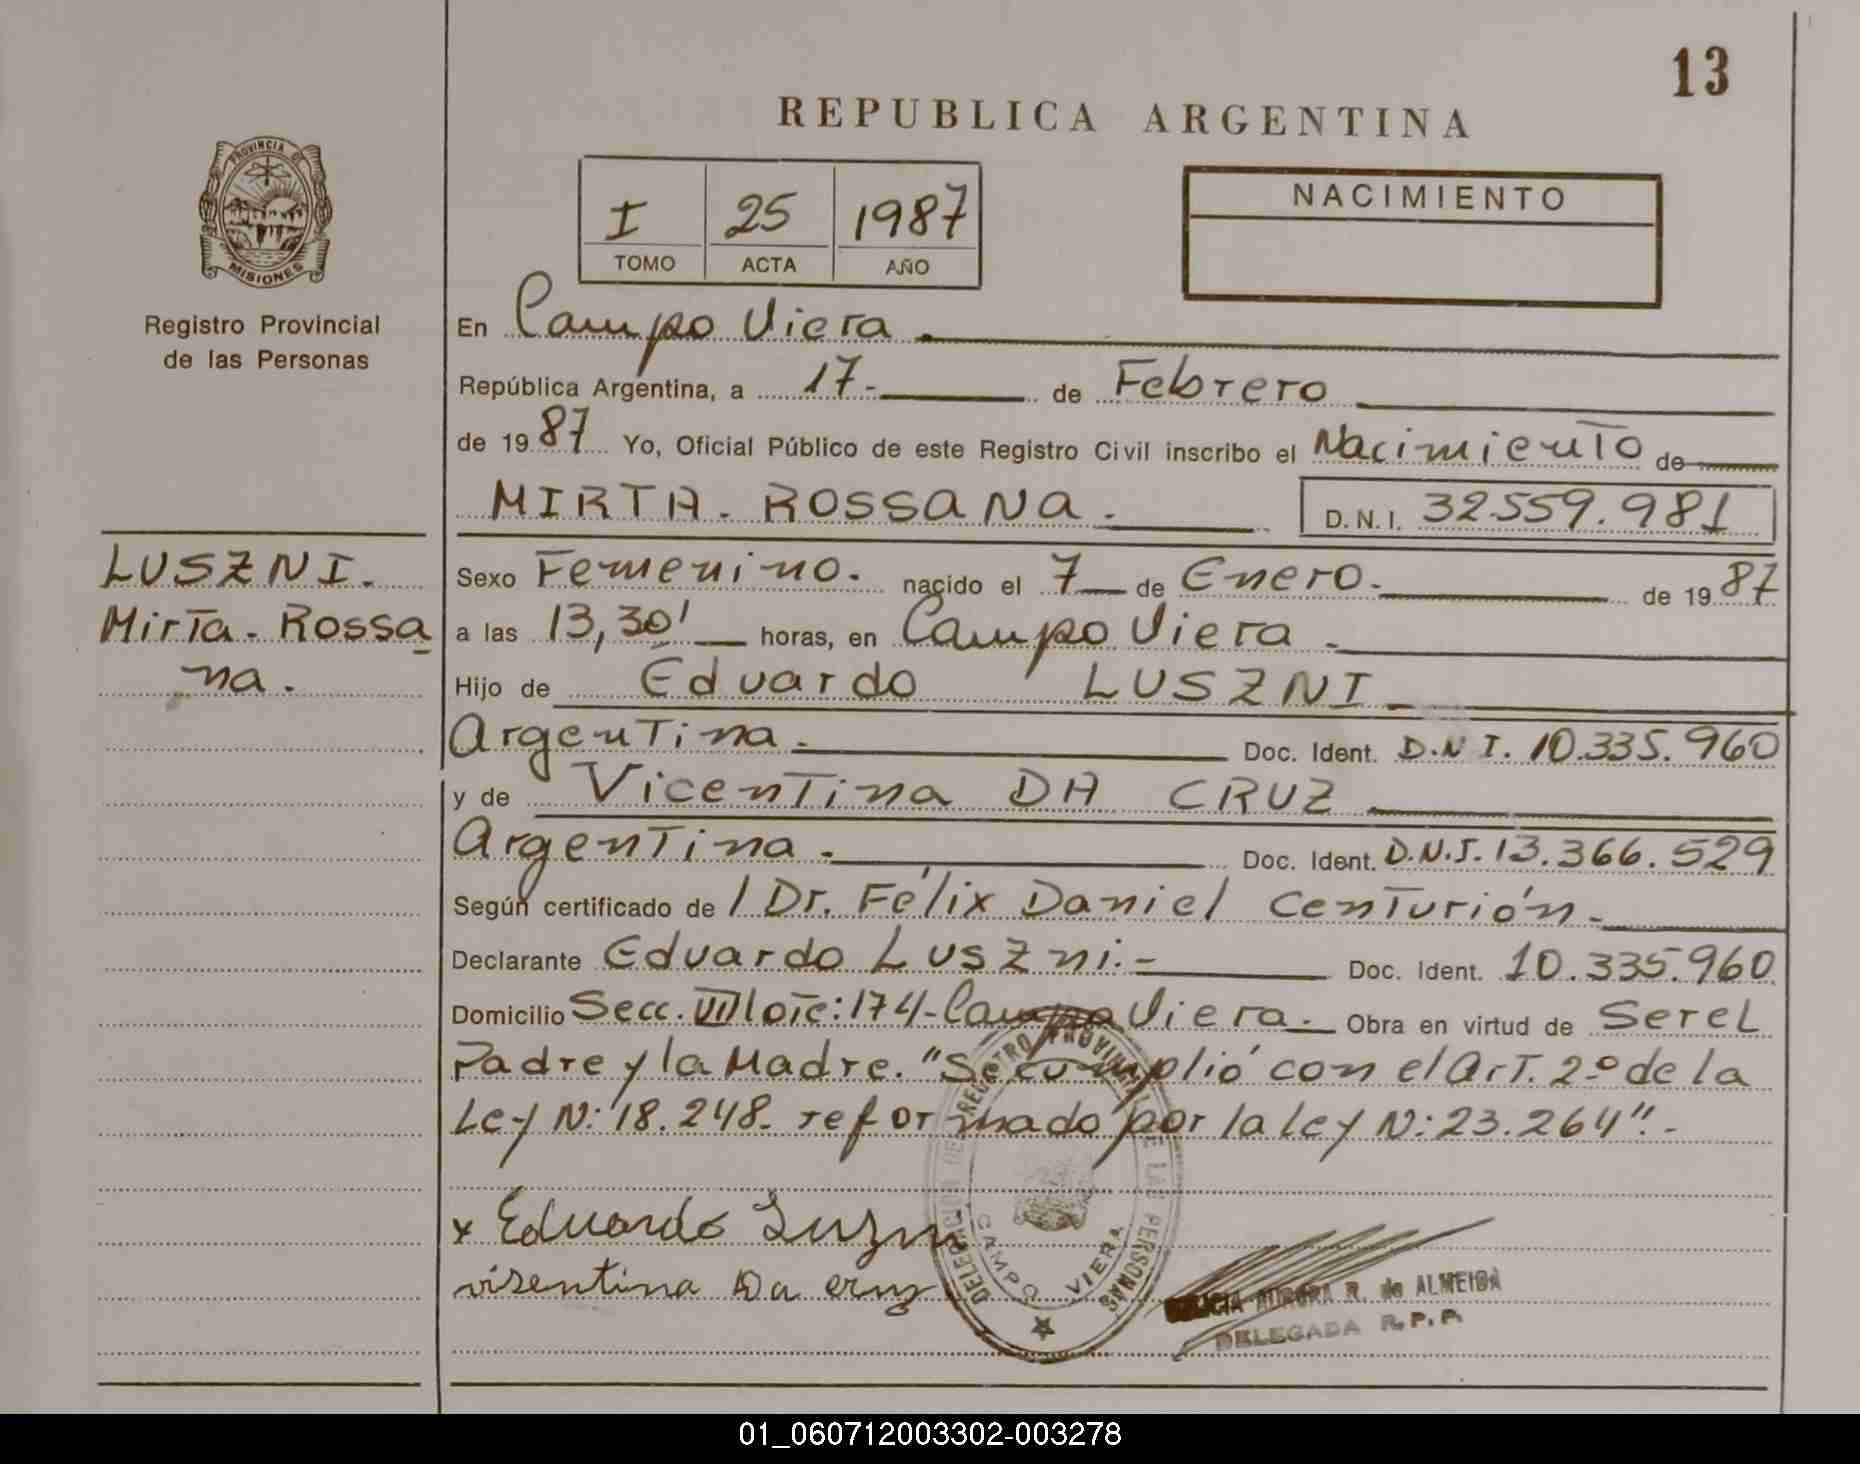 13
REPUBLICA ARGENTINA
PROVINCIA DE
MISIONES
Registro Provincial
de las Personas
I 25 1987
TOMO ACTA AÑO
NACIMIENTO
En Campo Viera.
República Argentina, a 17- de Febrero
de 1987 Yo, Oficial Público de este Registro Civil inscribo el Nacimiento de
MIRTA. ROSSANA. D.N.I. 32559.981
LUSZNI.
Mirta. Rossa
na.
Sexo Femenino. nacido el 7 de Enero. de 1987
a las 13,30' horas, en Campo Viera
Hijo de Eduardo LUSZNI
Argentina. Doc. Ident. D.N I. 10.335.960
y de Vicentina DA CRUZ
Argentina. Doc. Ident. D.N.I. 13.366.529
Según certificado de / Dr. Félix Daniel Centurión.
Declarante Eduardo Luszni.- Doc. Ident. 10.335.960
Domicilio Secc. VIII lote: 174-Campo Viera. Obra en virtud de Ser el
Padre y la Madre. "Se cumplió con el Art. 2º de la
Ley N: 18.248. reformado por la ley N: 23.264".-
x Eduardo Luzni
visentina Da cruz
DELEGACION DEL REGISTRO PROVINCIAL DE LAS PERSONAS
CAMPO VIERA
AURORA R. de ALMEIDA
DELEGADA R.P.P.
01_060712003302-003278